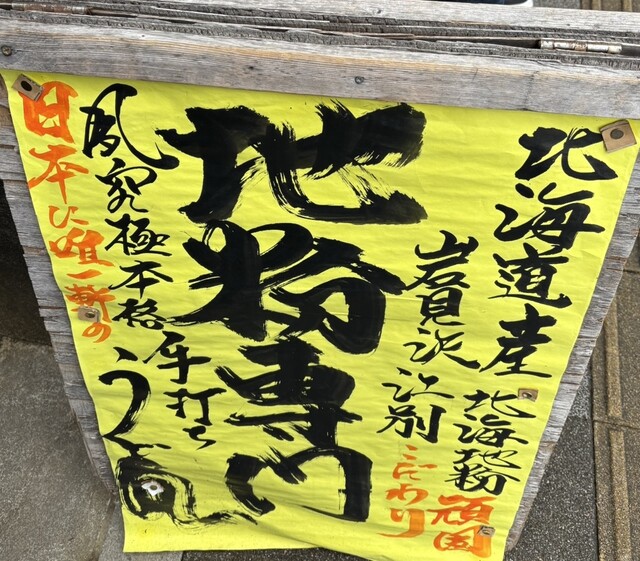 北海道産
北海地粉
頑固
岩見沢
江別
こだわり
地粉専門
風究極本格
手打ち
日本に唯一軒の